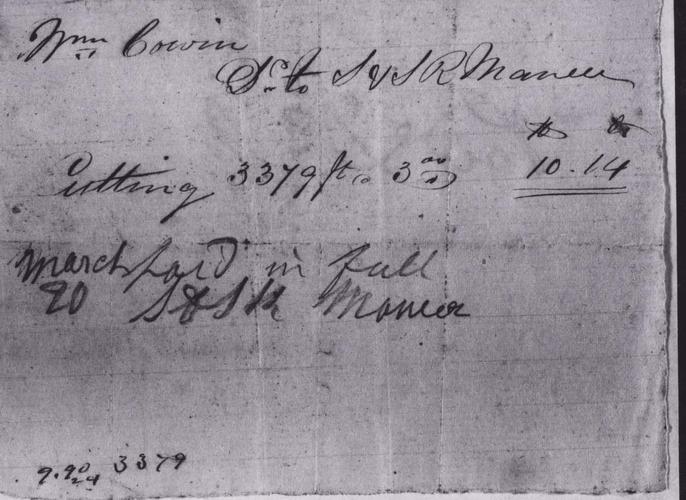 Wm Cowin
Dr to S & S R Maneer
$ cts
Cutting 3379 ft @ 3.00 10.14
March paid in full
20 S & S R Maneer
3379